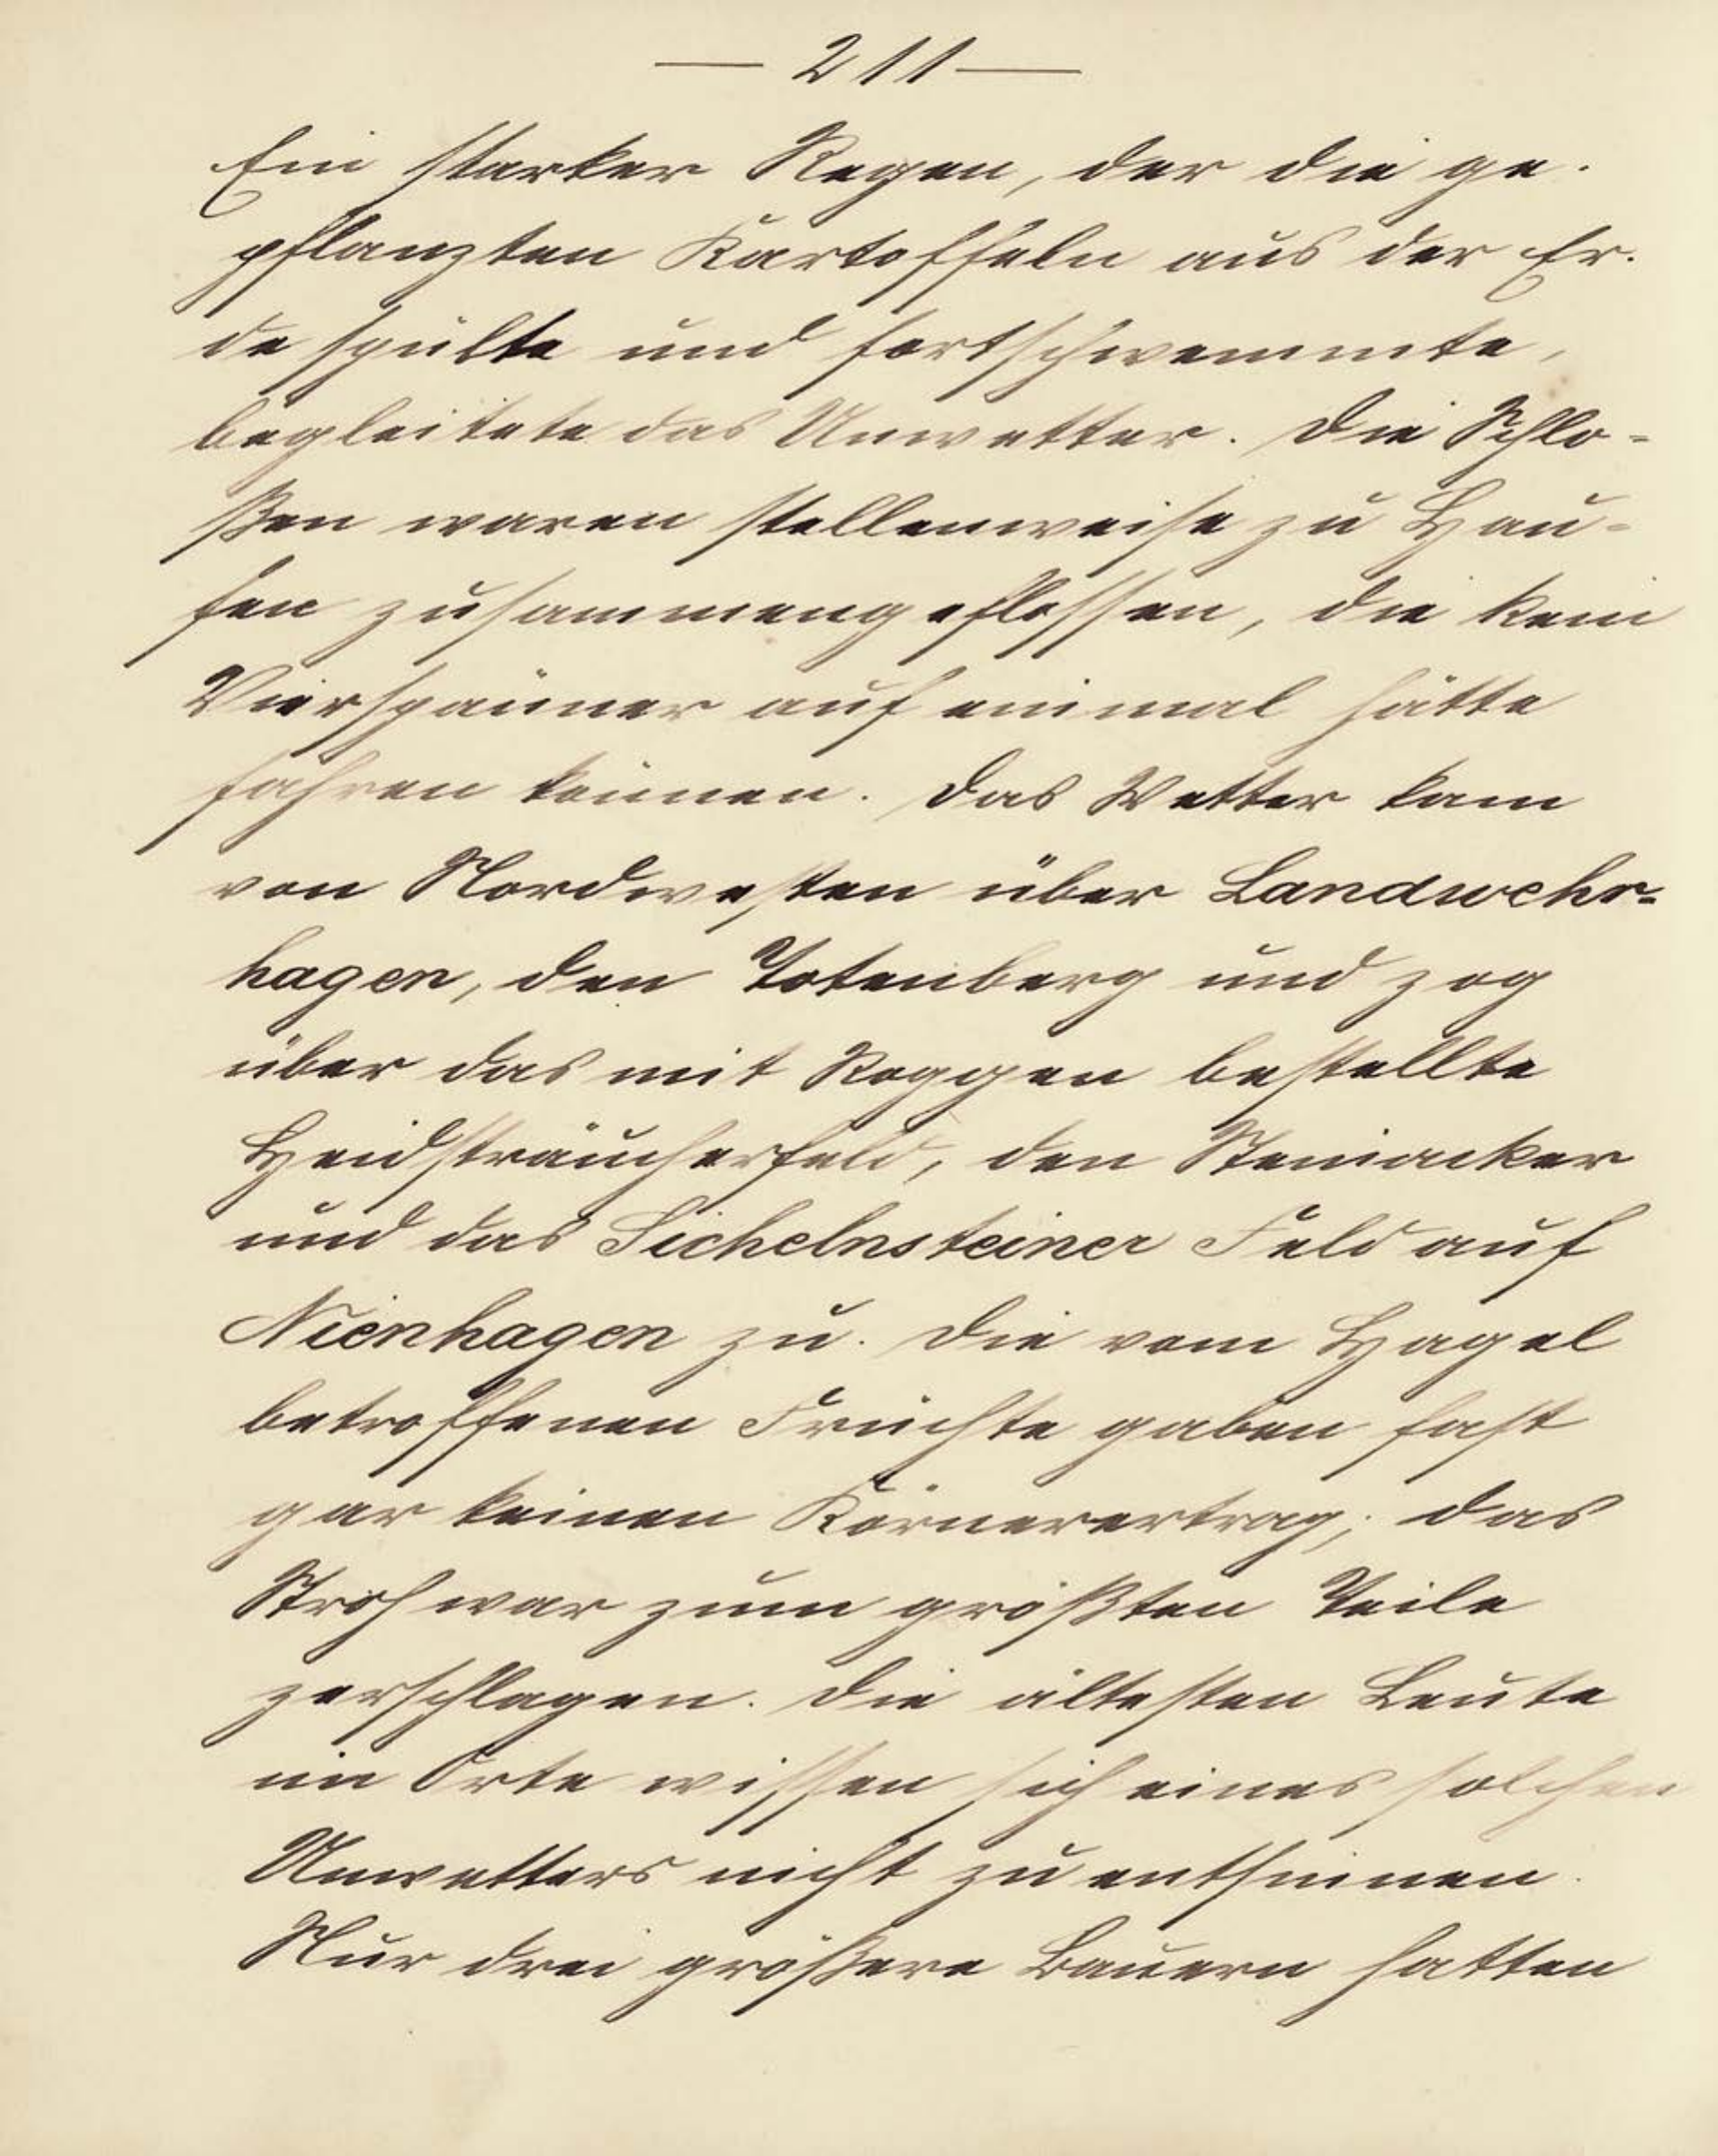 — 211 —
Ein starker Regen, der die ge-
pflanzten Kartoffeln aus der Er-
de spülte und fortschwemmte,
begleitete das Unwetter. Die Schlo-
ßen waren stellenweise zu Hau-
fen zusammengeflossen, die kein
Vierspänner auf einmal hätte
fahren können. Das Wetter kam
von Nordwesten über Landwehr-
hagen, den Totenberg und zog
über das mit Roggen bestellte
Heidsträucherfeld, den Steinacker
und das Sichelnsteiner Feld auf
Nienhagen zu. Die vom Hagel
betroffenen Früchte gaben fast
gar keinen Körnerertrag; das
Stroh war zum größten Teile
zerschlagen. Die ältesten Leute
im Orte wissen sich eines solchen
Unwetters nicht zu entsinnen.
Nur drei größere Bauern hatten